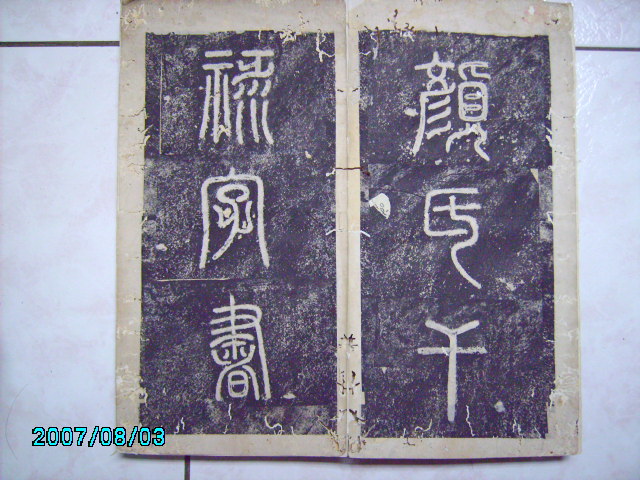 顏氏干
祿字書
2007/08/03